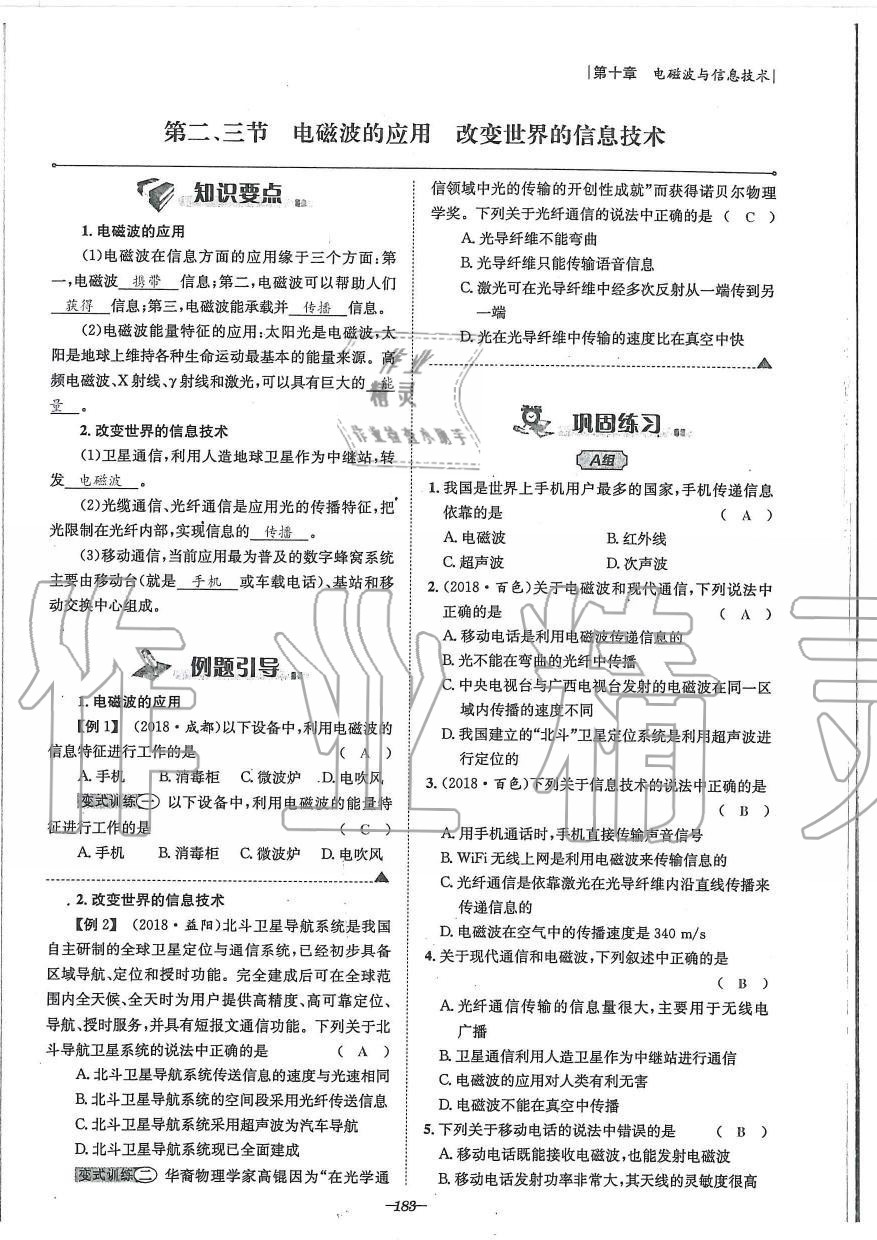 第十章 电磁波与信息技术
第二、三节 电磁波的应用 改变世界的信息技术
知识要点
1. 电磁波的应用
(1)电磁波在信息方面的应用缘于三个方面:第
一,电磁波 携带 信息;第二,电磁波可以帮助人们
获得 信息;第三,电磁波能承载并 传播 信息。
(2)电磁波能量特征的应用:太阳光是电磁波,太
阳是地球上维持各种生命运动最基本的能量来源。高
频电磁波、X射线、γ射线和激光,可以具有巨大的 能
量 。
2. 改变世界的信息技术
(1)卫星通信,利用人造地球卫星作为中继站,转
发 电磁波 。
(2)光缆通信、光纤通信是应用光的传播特征,把
光限制在光纤内部,实现信息的 传播 。
(3)移动通信,当前应用最为普及的数字蜂窝系统
主要由移动台(就是 手机 或车载电话)、基站和移
动交换中心组成。
例题引导
1. 电磁波的应用
【例1】 (2018·成都)以下设备中,利用电磁波的
信息特征进行工作的是 ( A )
A. 手机 B. 消毒柜 C. 微波炉 D. 电吹风
变式训练(一) 以下设备中,利用电磁波的能量特
征进行工作的是 ( C )
A. 手机 B. 消毒柜 C. 微波炉 D. 电吹风
2. 改变世界的信息技术
【例2】 (2018·益阳)北斗卫星导航系统是我国
自主研制的全球卫星定位与通信系统,已经初步具备
区域导航、定位和授时功能。完全建成后可在全球范
围内全天候、全天时为用户提供高精度、高可靠定位、
导航、授时服务,并具有短报文通信功能。下列关于北
斗导航卫星系统的说法中正确的是 ( A )
A. 北斗卫星导航系统传送信息的速度与光速相同
B. 北斗卫星导航系统的空间段采用光纤传送信息
C. 北斗卫星导航系统采用超声波为汽车导航
D. 北斗卫星导航系统现已全面建成
变式训练(二) 华裔物理学家高锟因为“在光学通
信领域中光的传输的开创性成就”而获得诺贝尔物理
学奖。下列关于光纤通信的说法中正确的是 ( C )
A. 光导纤维不能弯曲
B. 光导纤维只能传输语音信息
C. 激光可在光导纤维中经多次反射从一端传到另
一端
D. 光在光导纤维中传输的速度比在真空中快
巩固练习
A组
1. 我国是世界上手机用户最多的国家,手机传递信息
依靠的是 ( A )
A. 电磁波 B. 红外线
C. 超声波 D. 次声波
2. (2018·百色)关于电磁波和现代通信,下列说法中
正确的是 ( A )
A. 移动电话是利用电磁波传递信息的
B. 光不能在弯曲的光纤中传播
C. 中央电视台与广西电视台发射的电磁波在同一区
域内传播的速度不同
D. 我国建立的“北斗”卫星定位系统是利用超声波进
行定位的
3. (2018·百色)下列关于信息技术的说法中正确的是
( B )
A. 用手机通话时,手机直接传输声音信号
B. WiFi无线上网是利用电磁波来传输信息的
C. 光纤通信是依靠激光在光导纤维内沿直线传播来
传递信息的
D. 电磁波在空气中的传播速度是340 m/s
4. 关于现代通信和电磁波,下列叙述中正确的是
( B )
A. 光纤通信传输的信息量很大,主要用于无线电
广播
B. 卫星通信利用人造卫星作为中继站进行通信
C. 电磁波的应用对人类有利无害
D. 电磁波不能在真空中传播
5. 下列关于移动电话的说法中错误的是 ( B )
A. 移动电话既能接收电磁波,也能发射电磁波
B. 移动电话发射功率非常大,其天线的灵敏度很高
—183—
作业精灵
作业
精灵
作业检查小助手